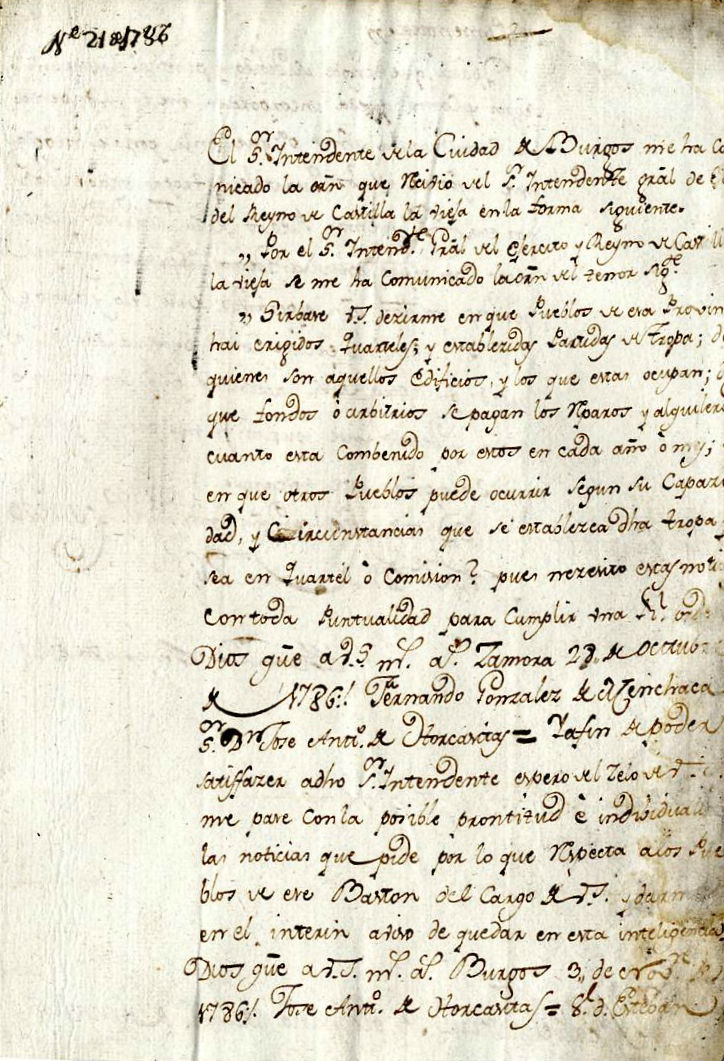 Nº 21 de 1786
El Sor. Intendente de la Ciudad de Burgos me ha Co
nicado la orn que Recivio del Sr. Intendente gral de
del Reyno de Castilla la vieja en la forma siguiente.
„ Por el Sor. Intendte. Gral del Exercito y Reyno de Castill
la vieja se me ha Comunicado la orn del tenor sigte.
„ Sirbase V.S. dezirme en que Pueblos de esa Provin
hai erigidos Quarteles; y establezidas Partidas de Tropa; d
quienes son aquellos Edificios, y los que estas ocupan; d
que fondos ò arbitrios se pagan los Reparos y alquilere
cuanto esta Combenido por estos en cada año ò mes;
en que otros Pueblos puede ocurrir segun su Capazi
dad, y Circunstancias que se establezca dha tropa
sea en Quartel ò Comision? pues nezesito estas noti
Con toda Puntualidad para Cumplir una Rl. orde
Dios gue a V.S. ms. as. Zamora 28„ de Octubre
de 1786„ Fernando Gonzalez de Menchaca
Sor. Dn Jose Anto. de Horcasitas = Y a fin de poder
satisfazer a dho Sor. Intendente espero del Zelo de V.
me pase Con la posible prontitud è individuali
las noticias que pide por lo que Respecta a los Pue
blos de ese Baston del Cargo de V.S. y darm
en el interin aviso de quedar en esta inteligencia
Dios gue a V.S. ms. as. Burgos 3„ de Nove.
1786„ Jose Anto. de Horcasitas = Sr. d. Esteban